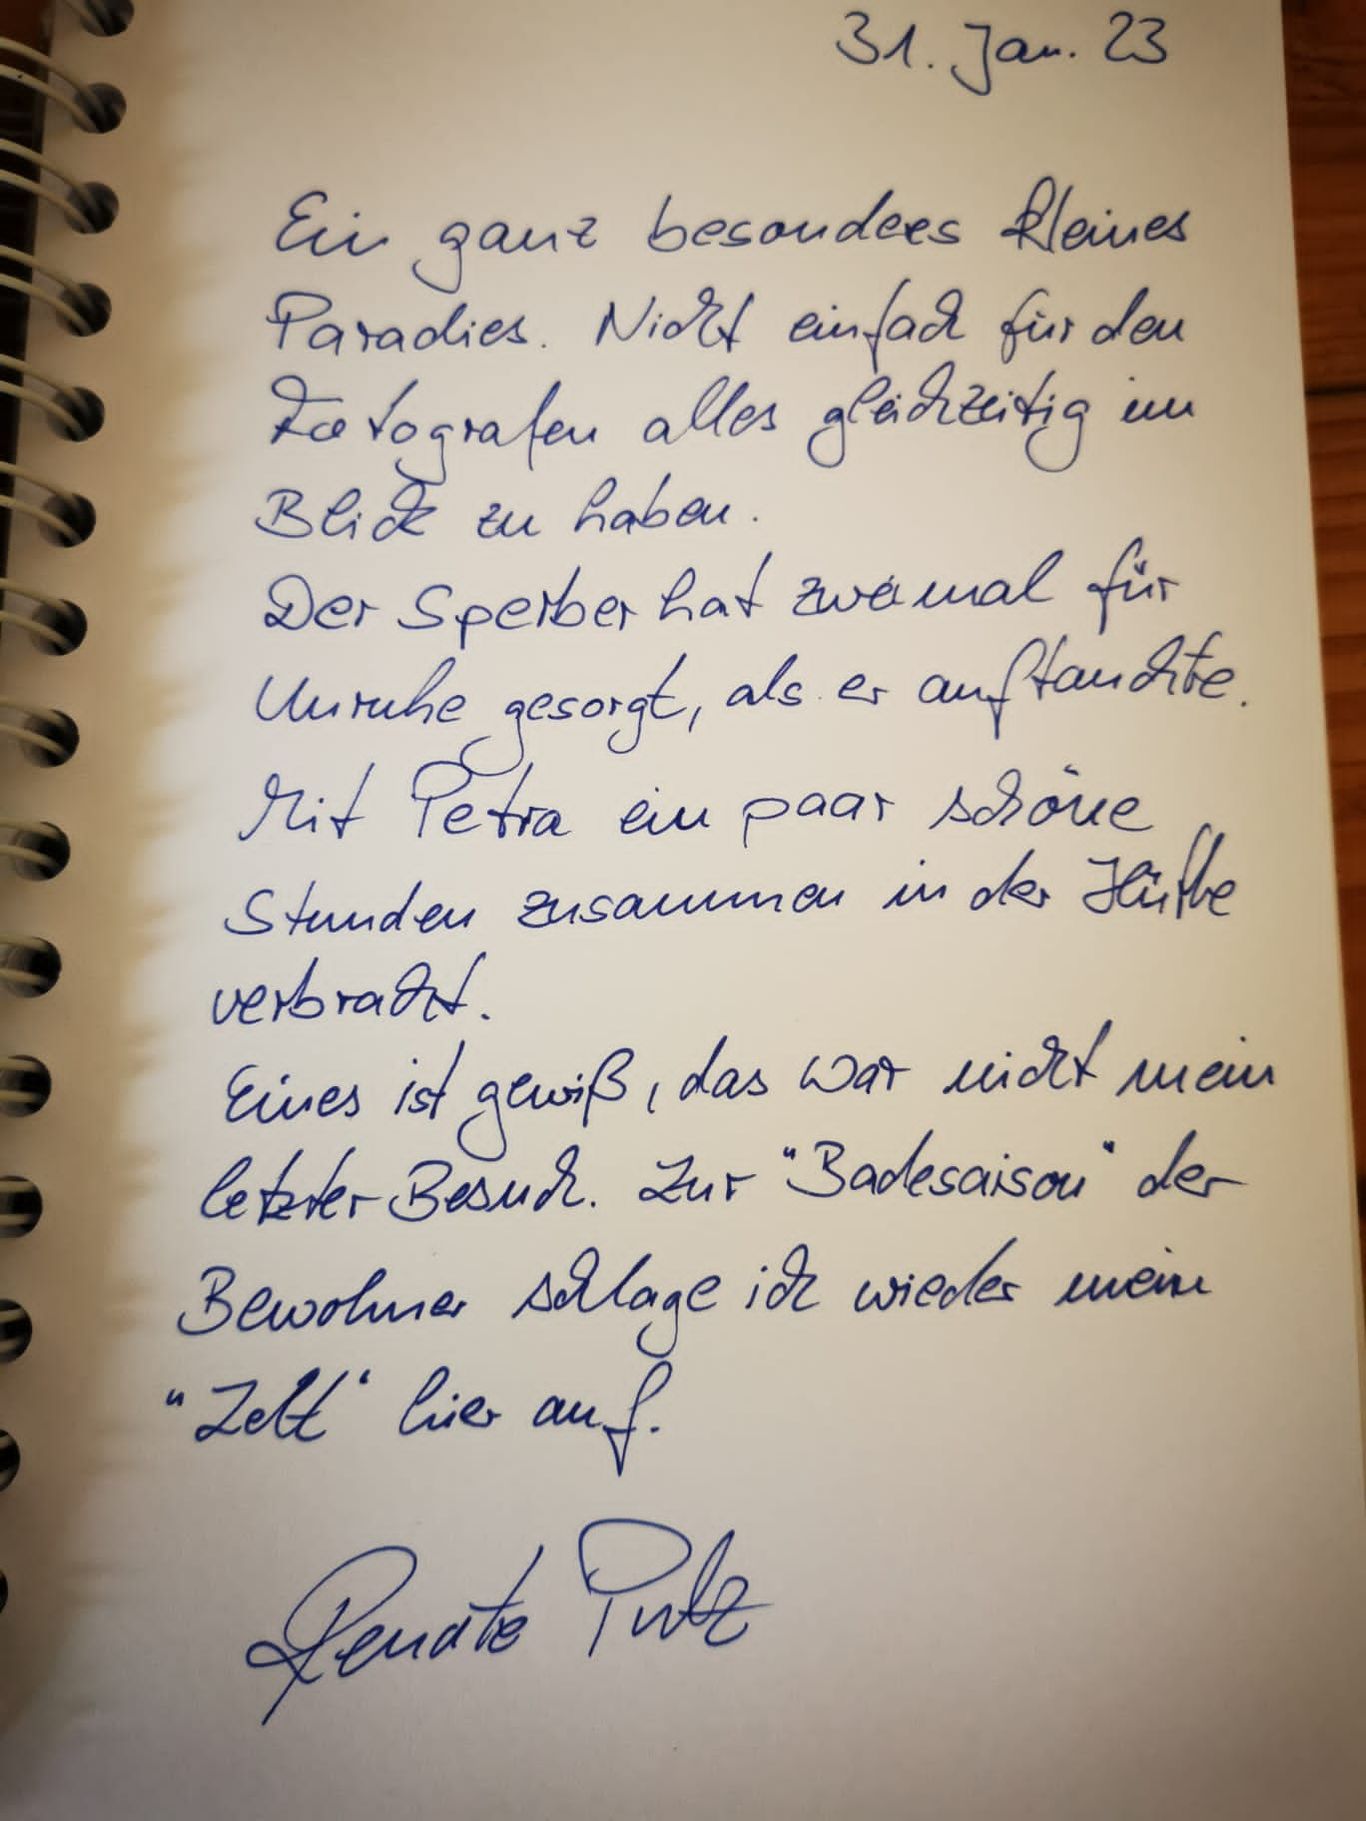 31. Jan. 23
Ein ganz besonderes kleines
Paradies. Nicht einfach für den
Fotografen alles gleichzeitig im
Blick zu haben.
Der Sperber hat zweimal für
Unruhe gesorgt, als er auftauchte.
Mit Petra ein paar schöne
Stunden zusammen in der Hütte
verbracht.
Eines ist gewiß, das war nicht mein
letzter Besuch. Zur "Badesaison" der
Bewohner schlage ich wieder mein
"Zelt" hier auf.
Renate Putz